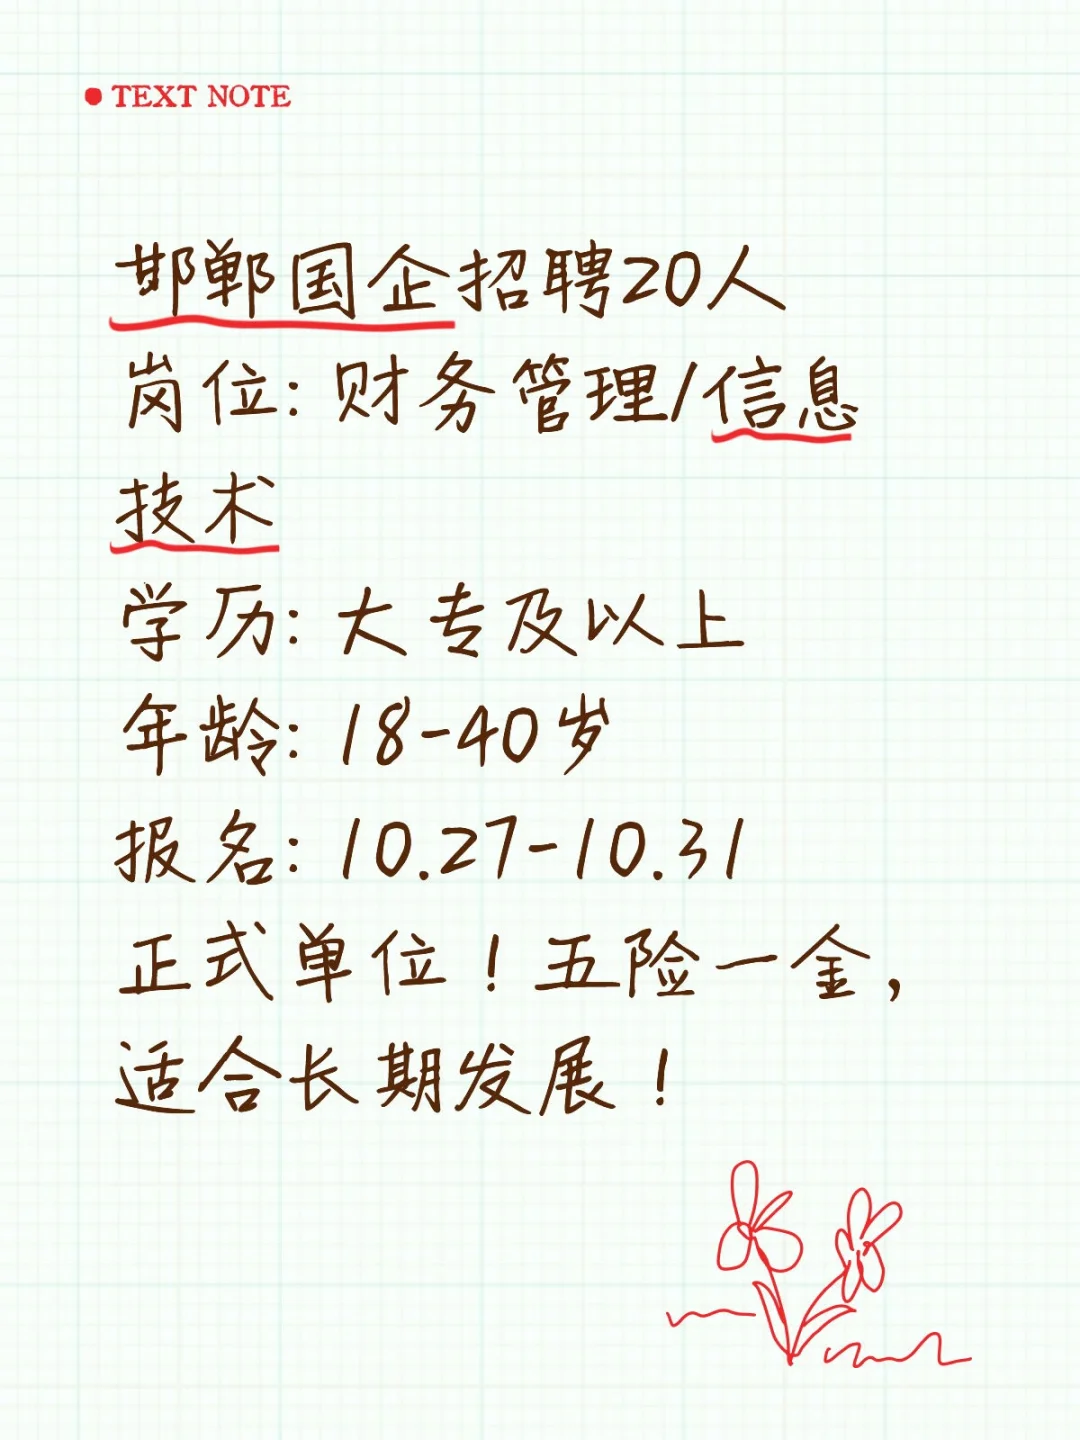 TEXT NOTE
邯郸国企招聘20人
岗位:财务管理/信息
技术
学历:大专及以上
年龄:18-40岁
报名:10.27-10.31
正式单位!五险一金,
适合长期发展!